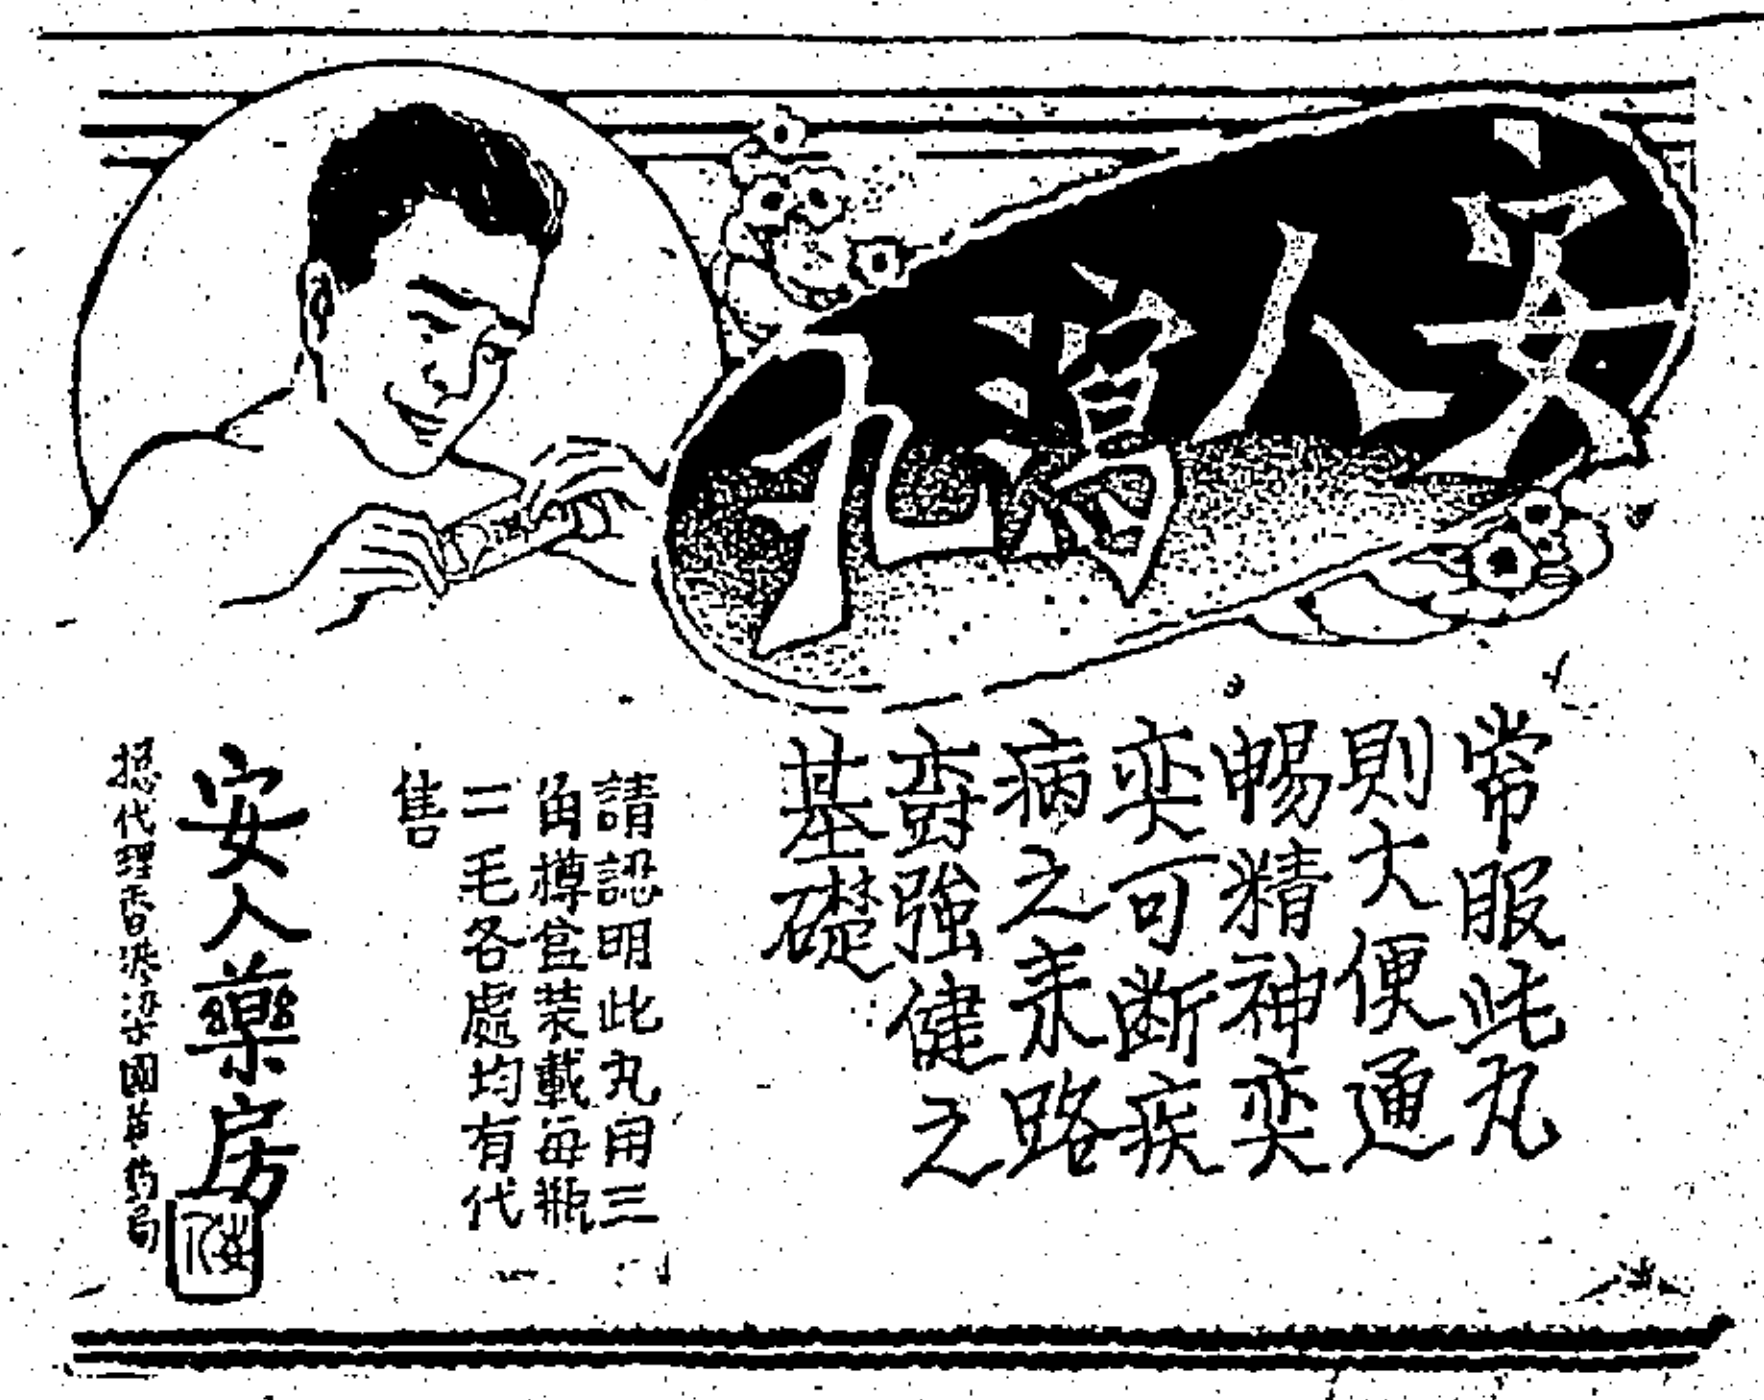 安人瀉丸
常服此丸
則大便通
暢精神奕
奕可断疾
病之來路
樹強健之
基礎
請認明此丸用三
角樽盒裝載每瓶
二毛各處均有代
售
安人藥房
揔代理香港梁國英药局